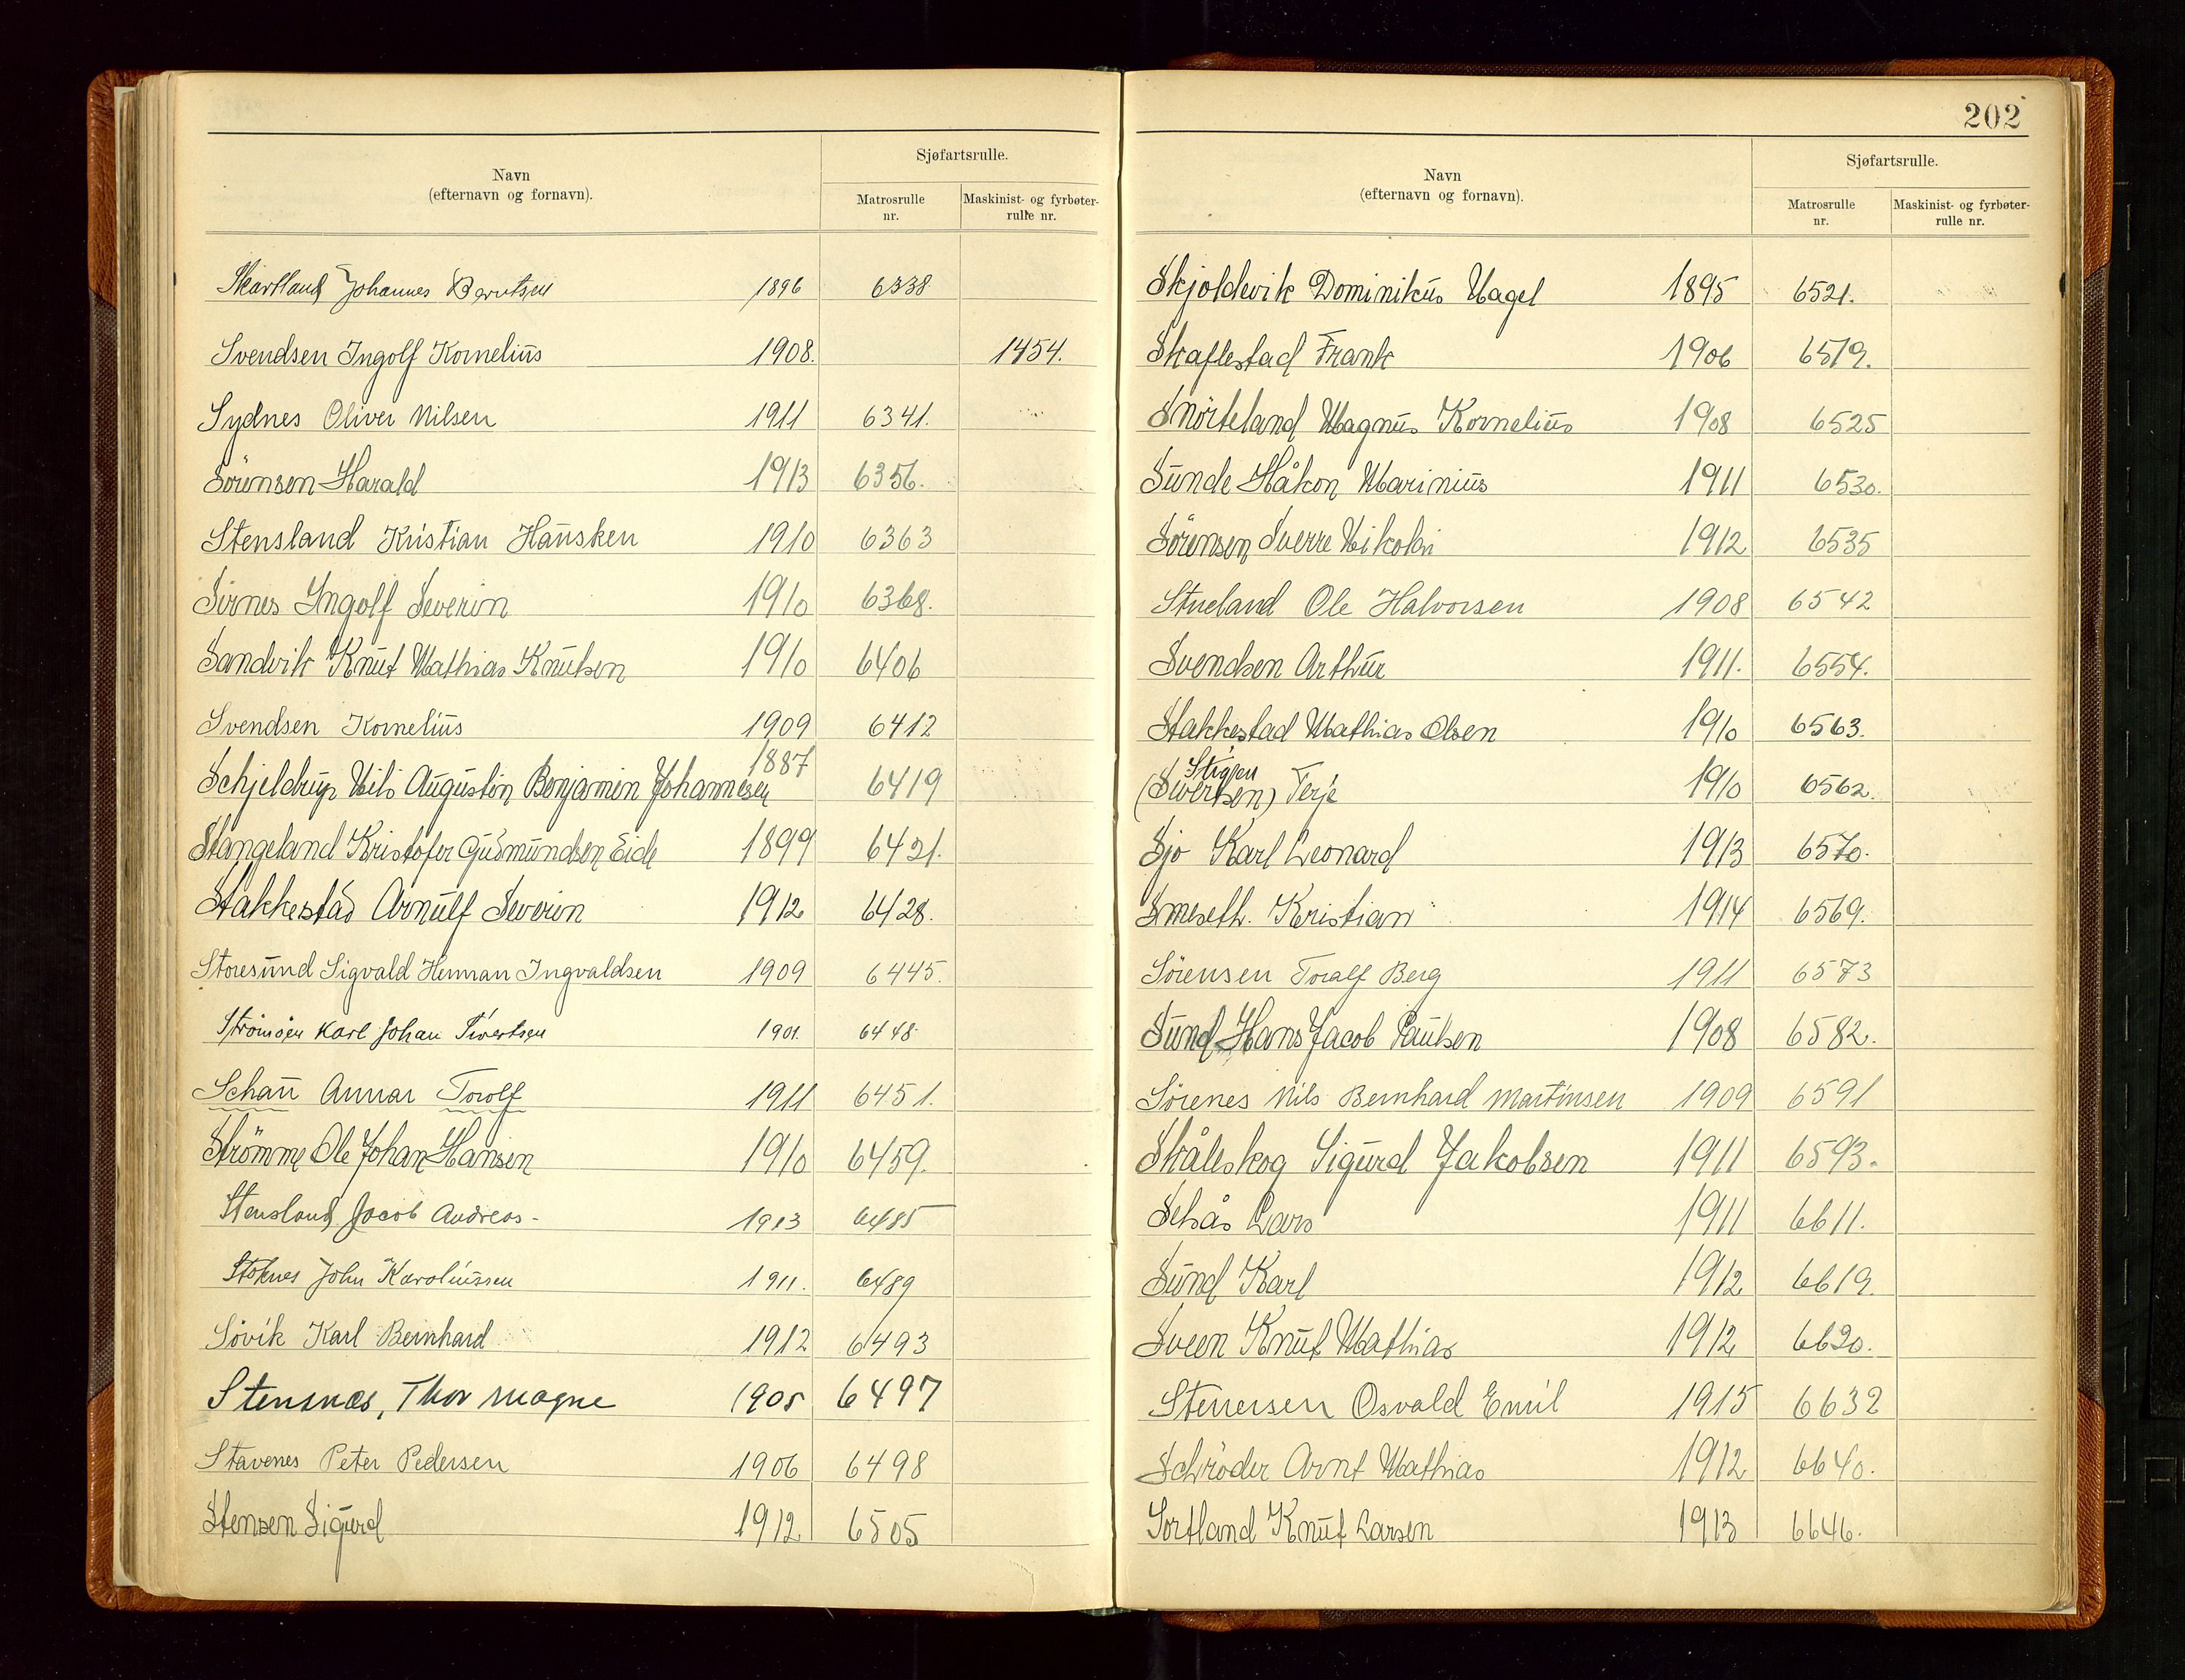 Navn
(efternavn og fornavn).
Sjøfartsrulle.
Matrosrulle nr.
Maskinist- og fyrbøter-rulle nr.
Skartland Johannes Berntsen 1896 6338
Svendsen Ingolf Kornelius 1908. 1454.
Sydnes Oliver Nilsen 1911 6341.
Sörensen Harald 1913 6356.
Stensland Kristian Hausken 1910 6363
Sirnes Ingolf Severin 1910 6368.
Sandvik Knut Mathias Knutsen 1910 6406
Svendsen Kornelius 1909 6412
Schjeldrup Nils Augustin Benjamin Johannesen 1887 6419
Stangeland Kristofer Gudmundsen Eide 1899 6421.
Stakkestad Arnulf Severin 1912 6428.
Storesund Sigvald Herman Ingvaldsen 1909 6445.
Strömöen Karl Johan Sivertsen 1901. 6448.
Schau Annar Torolf 1911 6451.
Strömme Ole Johan Hansen 1910 6459.
Stensland Jacob Andreas- 1913 6485
Stoknes John Karoliussen 1911. 6489
Sövik Karl Bernhard 1912 6493
Stensnæs, Thor Magne 1905 6497
Stavenes Peter Pedersen 1906 6498
Stensen Sigurd 1912 6505
202
Navn
(efternavn og fornavn).
Sjøfartsrulle.
Matrosrulle nr.
Maskinist- og fyrbøter-rulle nr.
Skjoldevik Dominikus Nagel 1895 6521.
Skaflestad Frank 1906 6519.
Snörteland Magnus Kornelius 1908 6525
Sunde Håkon Marinius 1911 6530.
Sörensen Sverre Nikolai 1912 6535
Stueland Ole Halvorsen 1908 6542
Svendsen Arthur 1911. 6554.
Stakkestad Mathias Olsen 1910 6563.
Stigen
(Sivertsen) Terje 1910 6562.
Sjo Karl Leonard 1913 6570.
Smeseth. Kristian 1914 6569.
Sörensen Toralf Berg 1911 6573
Sund Hans Jacob Paulsen 1908 6582.
Sörenes Nils Bernhard Martinsen 1909 6591
Skåleskog Sigurd Jakobsen 1911 6593.
Selsås Lars 1911 6611.
Sund Karl 1912 6619.
Sveen Knut Mathias 1912 6620.
Stenersen Osvald Emil 1915 6632
Schröder Arnt Mathias 1912 6640.
Sortland Knut Larsen 1913 6646.